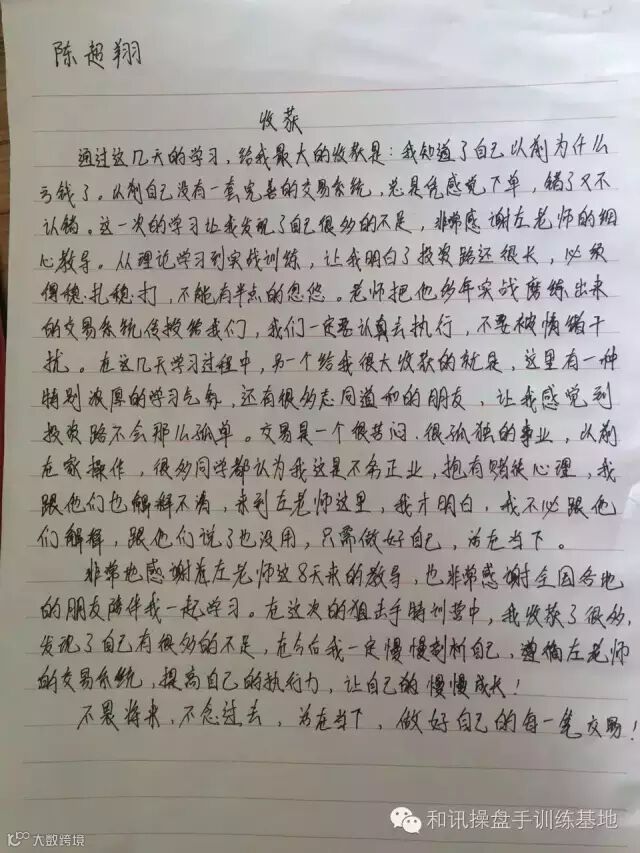 陈超翔
收获
通过这几天的学习，给我最大的收获是：我知道了自己以前为什么
亏钱了。以前自己没有一套完善的交易系统，总是凭感觉下单，错了又不
认错。这一次的学习让我发现了自己很多的不足，非常感谢左老师的细
心教导。从理论学习到实战训练，让我明白了投资路还很长，必须
得稳扎稳打，不能有半点的忽悠。老师把他多年实战磨练出来
的交易系统传授给我们，我们一定要认真去执行，不要被情绪干
扰。在这几天学习过程中，另一个给我很大收获的就是，这里有一种
特别浓厚的学习气氛，还有很多志同道和的朋友，让我感觉到
投资路不会那么孤单。交易是一个很苦闷、很孤独的事业，以前
在家操作，很多同学都认为我这是不务正业，抱有赌徒心理，我
跟他们也解释不清，来到左老师这里，我才明白，我不必跟他
们解释，跟他们说了也没用，只需做好自己，活在当下。
非常地感谢左老师这8天来的教导，也非常感谢全国各地
的朋友陪伴我一起学习。在这次的狙击手特训营中，我收获了很多，
发现了自己有很多的不足，在今后我一定慢慢剖析自己，遵循左老师
的交易系统，提高自己的执行力，让自己的慢慢成长！
不畏将来，不念过去，活在当下，做好自己的每一笔交易！
和讯操盘手训练基地
10100 大数跨境